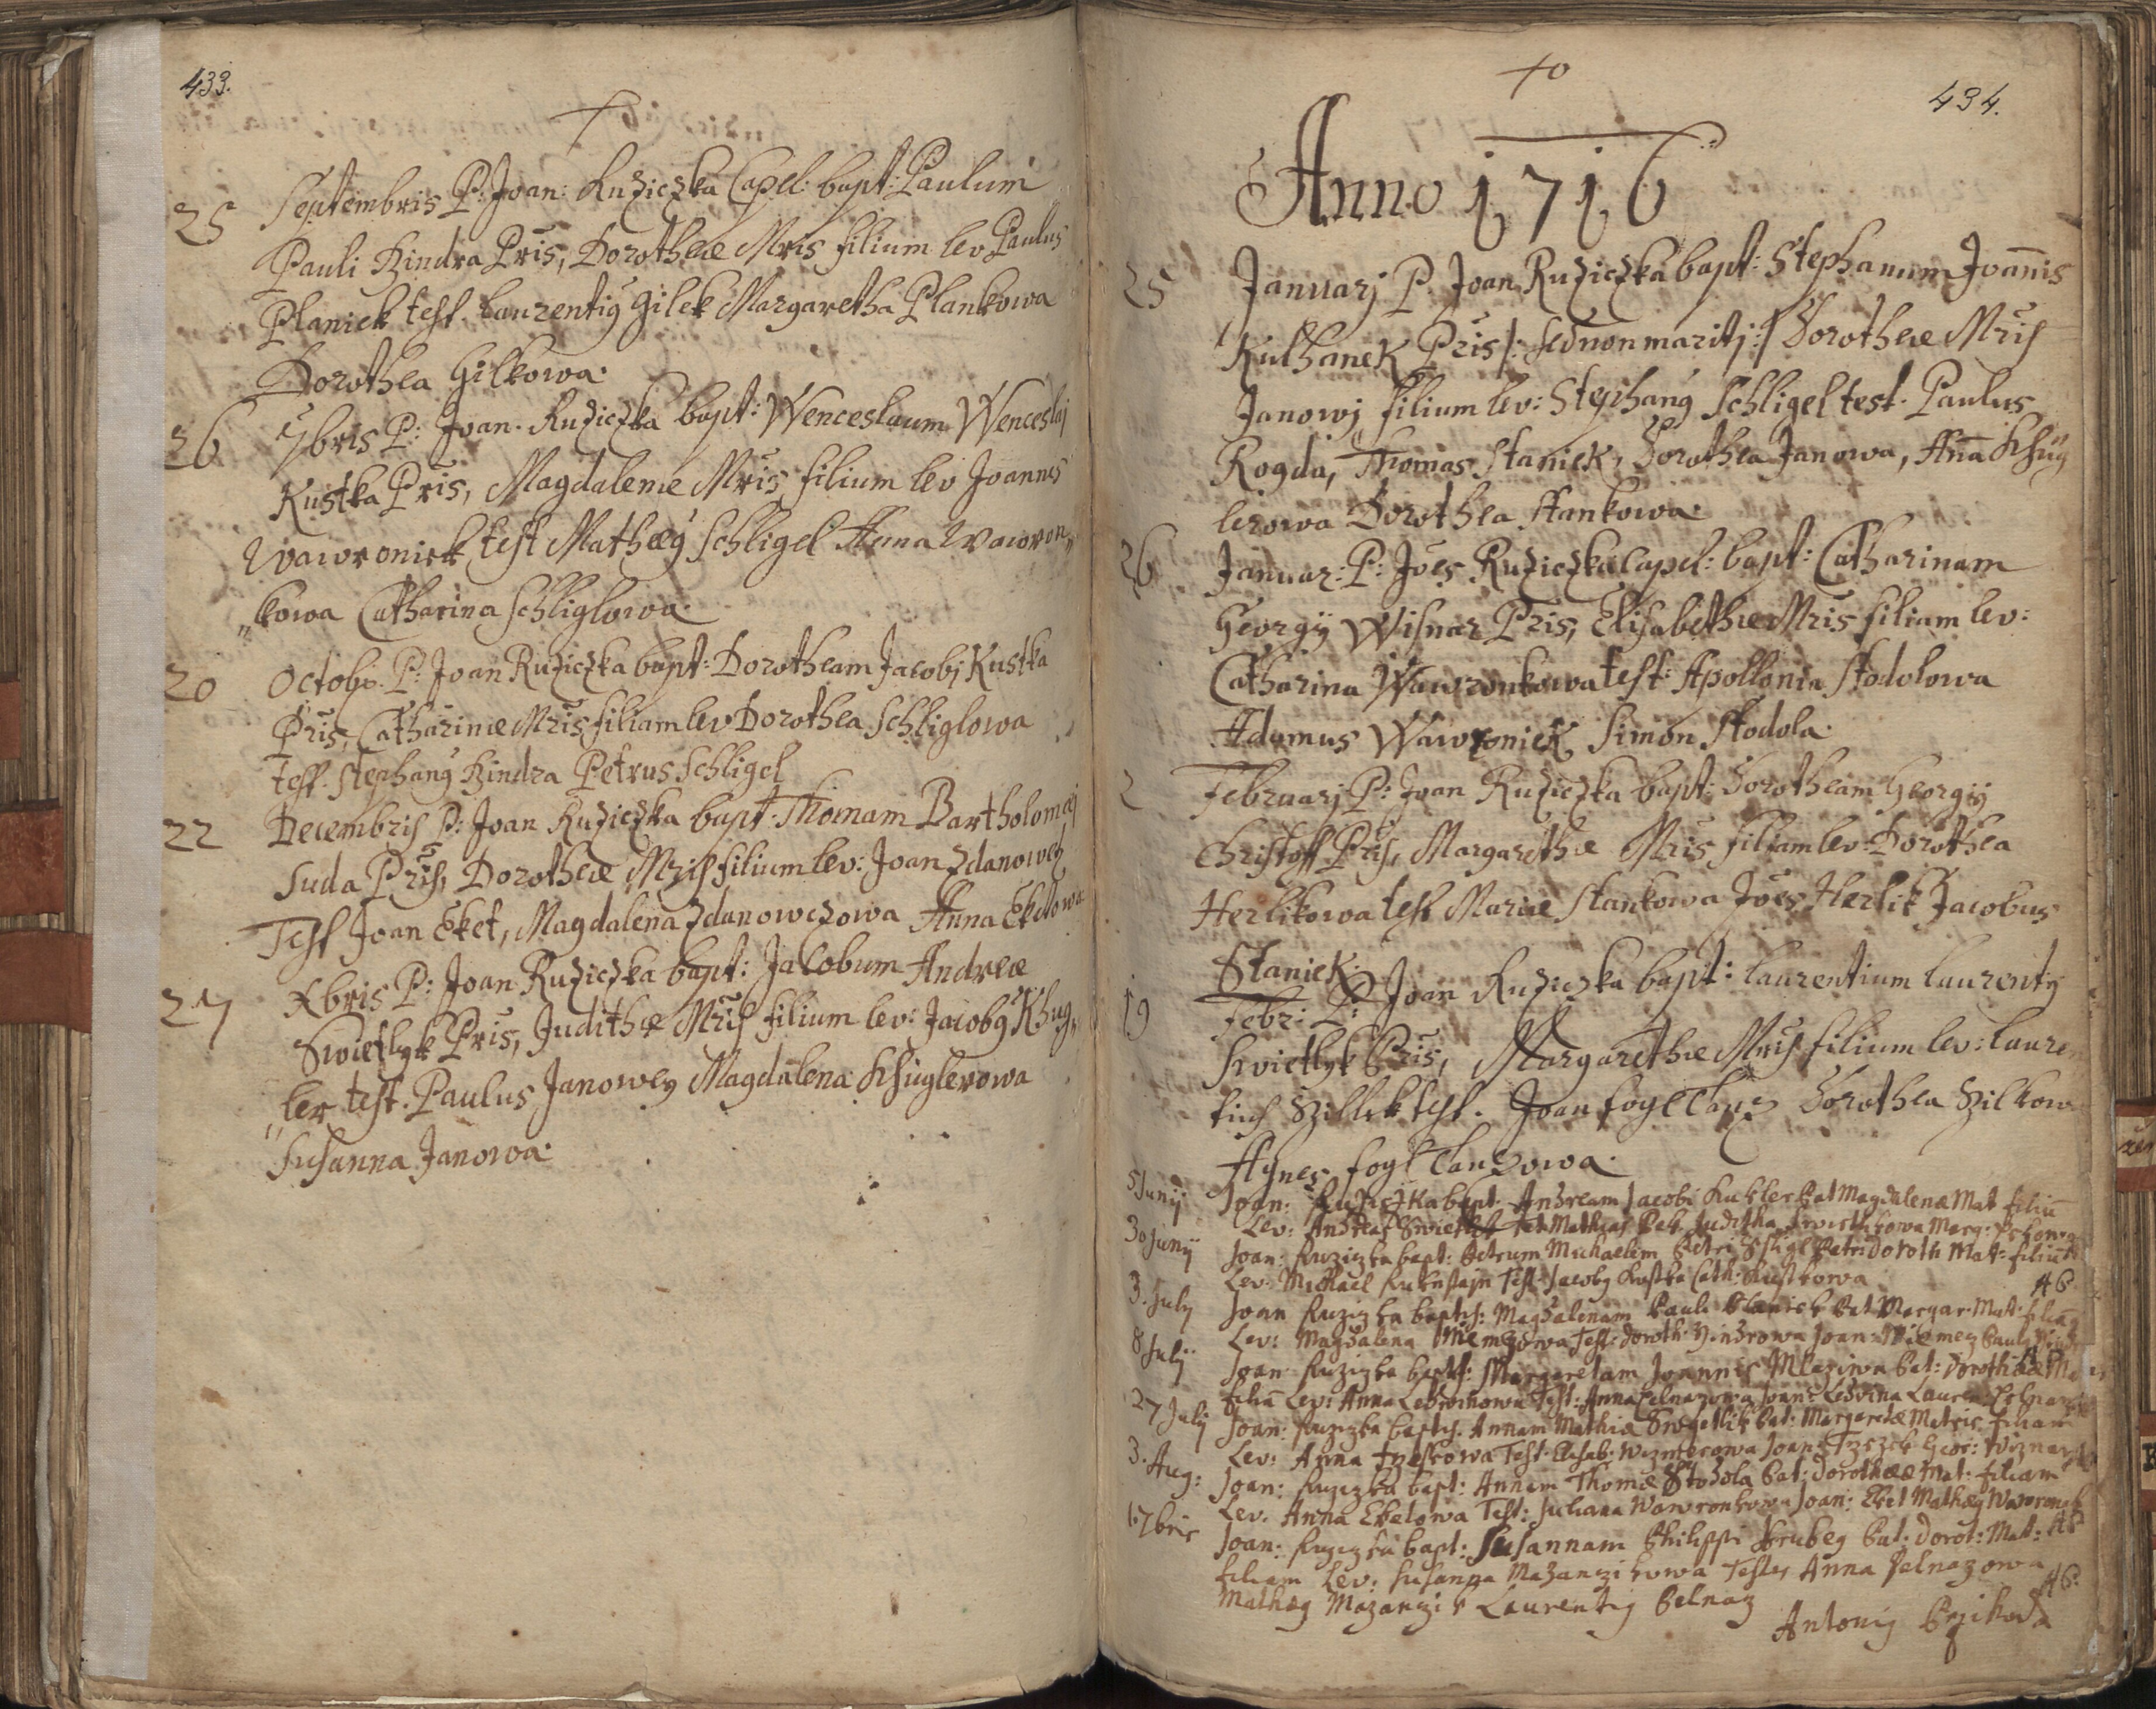 433.
25 Septembris P: Joan: Ruziczka Capel: bapt: Paulum
Pauli Bindra Pris, Dorotheæ Mris filium lev Paulus
Planiek test. Laurentiy Gilek Margaretha Plankowa
Dorothea Gilkowa.
26 7bris P: Joan. Ruziczka bapt: Wenceslaum Wenceslaj
Kustka Pris, Magdalenæ Mris filium lev Joannes
Wawroniek test Mathæy Schligel Anna Wawron„
„kowa Catharina Schliglowa.
20 Octobr. P: Joan Ruziczka bapt: Dorotheam Jacobj Kustka
Pris, Catharinæ Mris filiam lev Dorothea Schliglowa
test. Stephany Bindra Petrus Schligel
22 Decembris P: Joan Ruziczka bapt. Thomam Bartholomæj
Suda Pris, Dorotheæ Mris filium lev: Joan Zdanowez
Test Joan Eket, Magdalena Zdanowczowa Anna Eketowa
27 Xbris P: Joan Ruziczka bapt: Jacobum Andreæ
Swietlyk Pris, Judithæ Mris filium lev: Jacoby Khug„
„ler test. Paulus Janowey Magdalena Khuglerowa
Susanna Janowa.
434.
Anno 1716
25 Januarj P. Joan Ruziczka bapt: Stephanum Joanis
Kulhanek Pris /: sed non maritj :/ Dorotheæ Mris
Janowj filium lev: Stephany Schligel test. Paulus
Rogda, Thomas Staniek, Dorothea Janowa, Anna Khug
lerowa Dorothea Stankowa.
26 Januar: P: Joes Ruziczka Capel: bapt: Catharinam
Georgij Wisnar Pris, Elisabethæ Mris filiam lev:
Catharina Wawronkowa test: Apollonia Stodolowa
Adamus Wawroniek Simon Stodola.
2 Februarj P: Joan Ruziczka bapt: Dorotheam Georgij
Christoff Pris, Margarethæ Mris filiam lev: Dorothea
Herlikowa test Mariæ Stankowa Joes Herlik Jacobus
Staniek.
19 Febr: P: Joan Ruziczka bapt: Laurentium Laurentij
Swietlyk Pris, Margarethæ Mris filium lev: Laure
tius Szillek test. Joan Foglltanz Dorothea Szilkow
Agnes Fogltanzowa.
5 Junij Joan: Ruziczka bapt. Andream Jacobi Kukler Pat Magdalenæ Mat filiu
Lev: Andreas Swietlik Mathias Judytha
30 Junij Joan: Ruziczka bapt: Petrum Michaelem Petri Schligl Patris Doroth Mat: filiu
Lev: Michael Test: Jacoby Kustka Cath: Kustkowa
AP
3. July Joan Ruziczka baptis: Magdalenam Pauli Planiek Pat Margar. Mat: filiam
Lev: Magdalena Niemczowa Test: Doroth: Joan: Niemecz
8 Julij Joan: Ruziczka bapt: Margaretam Joannis Pat: Dorotheæ
filia Lev: Anna Test: Anna Pelnazowa Joan: Ledvina Lauren: Pelnaz
27 Julij Joan: Ruziczka baptis. Annam Mathiæ Swietlik Pat: Margaretæ Matris filiam
Lev: Anna Test. Elisab: Joan: Geor: Wiznar
3. Aug: Joan: Ruziczka bapt: Annam Thomæ Stodola Pat: Dorotheæ Mat: filiam
Lev: Anna Eketowa Test: Juliana Wawronkowa Joan: Eket Mathæy Wawroniek
17bris Joan: Ruziczka bapt: Susannam Philippi Hrubey Pat: Dorot: Mat: AP
filiam Lev: Susanna Mazanczikowa Testes Anna Pelnazowa
Mathæy Mazanczik Laurentiy Pelnaz AP.
Antonij Przikoda